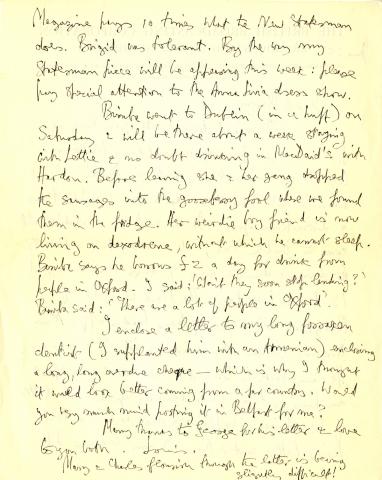 Magazine pays 10 times what the New Statesman
does. Brigid was tolerant. By the way my
Statesman piece will be appearing this week: please
pay special attention to the Anna Livia dress show.
Bimba went to Dublin (in a huff) on
Saturday & will be there about a week staying
with Lettie & no doubt drinking in MacDaid's with
Hardon. Before leaving she & her gang dropped
the sausages into the gooseberry fool where we found
them in the fridge. Her weirdie boy friend is now
living on dexedrene, without which he cannot sleep.
Bimba says he borrows £2 a day for drink from
people in Oxford. I said: 'Won't they soon stop lending?'
Bimba said: 'There are a lot of people in Oxford'.
I enclose a letter to my long forsaken
dentist (I supplanted him with an Armenian) enclosing
a long, long overdue cheque — which is why I thought
it would look better coming from a far country. Would
you very much mind posting it in Belfast for me?
Many thanks to George for his letter & love
to you both. Louis.
Mary & Charles flourish though the latter is being
slightly difficult!